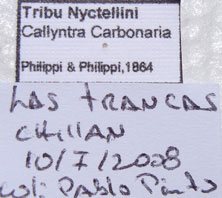 Tribu Nyctellini
Callyntra Carbonaria
Philippi & Philippi,1864
LAS TRANCAS
CHILLAN
10/7/2008
Col: Pablo Pinto